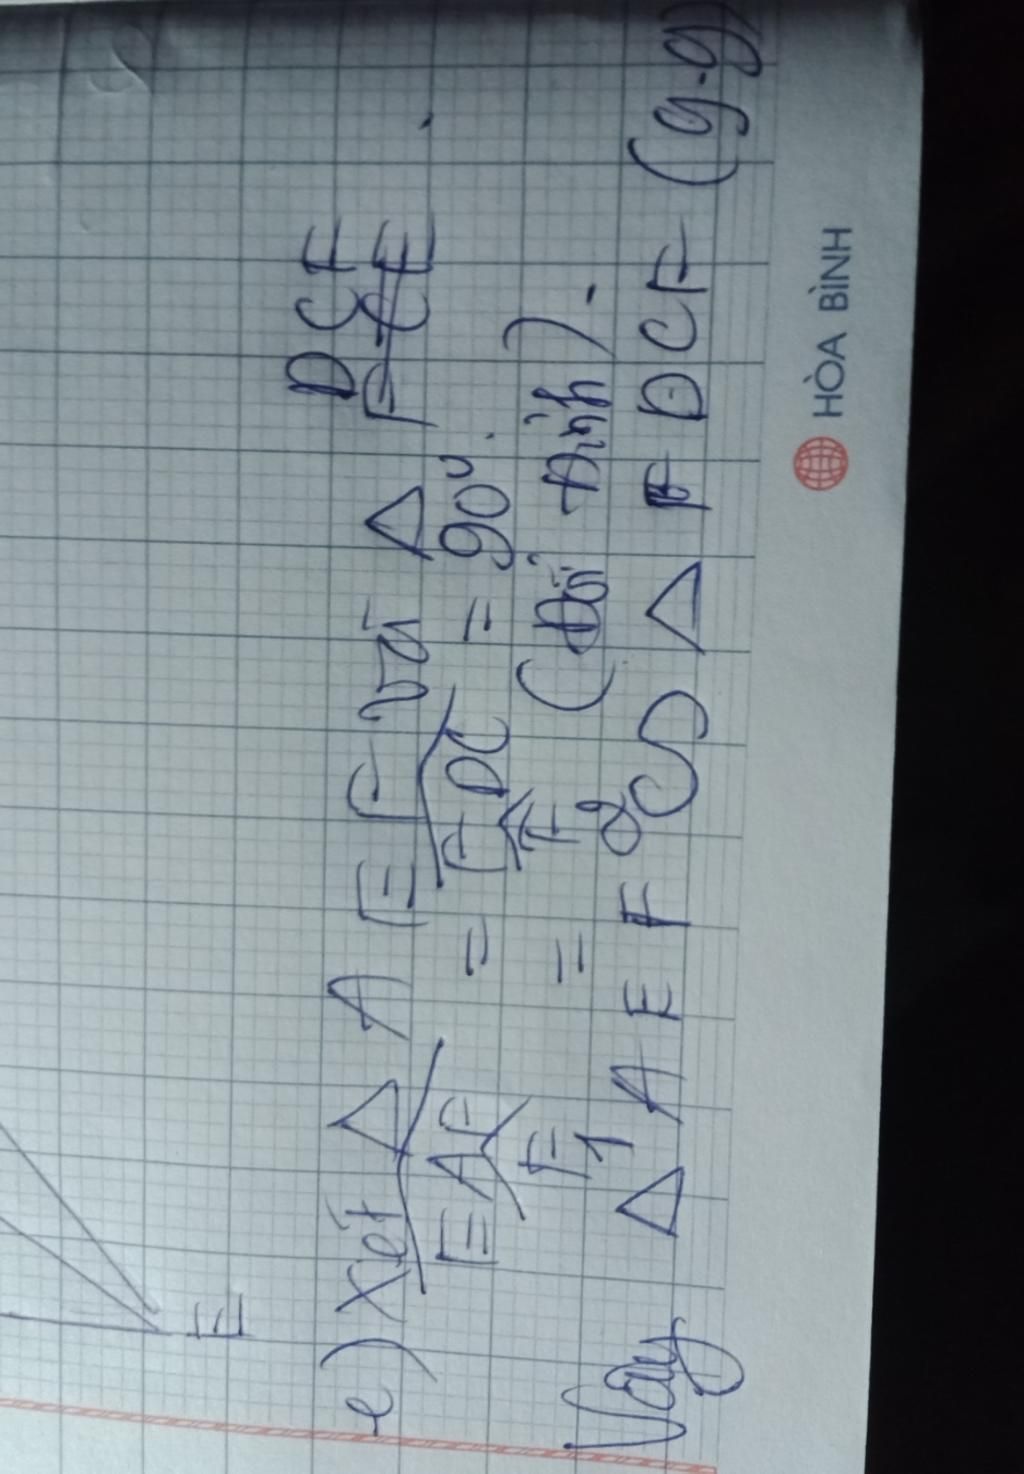 E
e) Xét Δ AEF và Δ DCF
EAF = FDC = 90°.
F1 = F2 (Đối đỉnh).
Vậy Δ AEF ∽ Δ DCF (g.g)
HÒA BÌNH